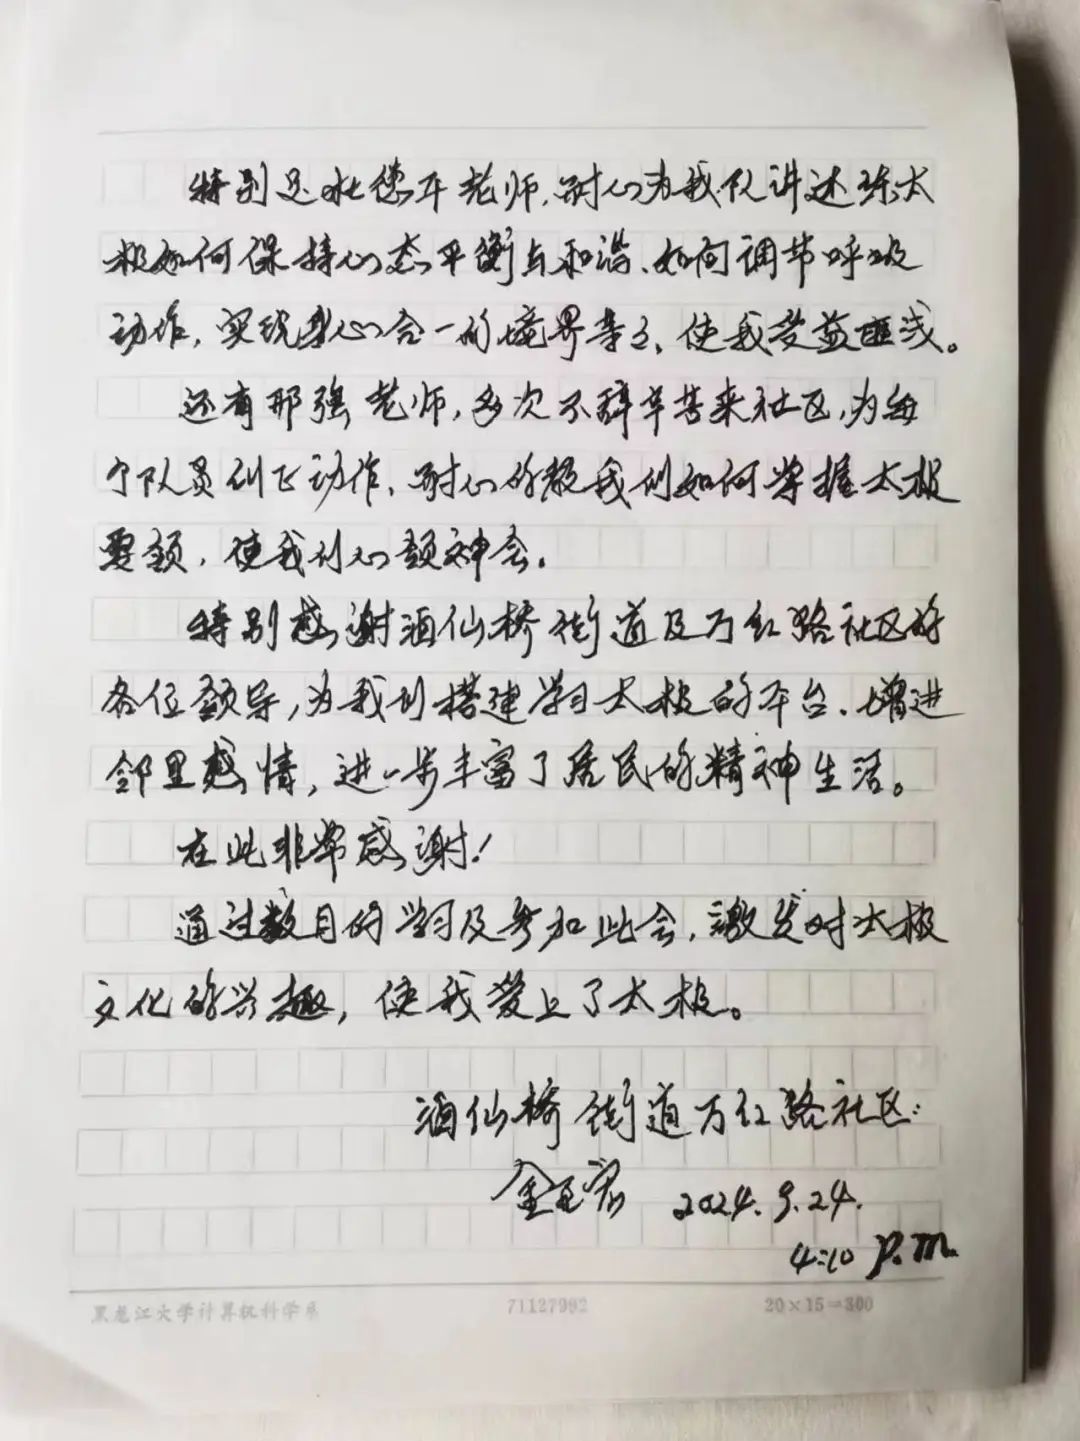 特别是张德平老师,耐心为我队讲述练太
极如何保持心态平衡与和谐、如何调节呼吸
动作,实现身心合一的境界等之、使我受益匪浅。
还有邢强老师,多次不辞辛苦来社区,为每
个队员纠正动作、耐心的教我们如何掌握太极
要领,使我们心领神会.
特别感谢酒仙桥街道及万红路社区的
各位领导,为我们搭建学习太极的平台、增进
邻里感情,进一步丰富了居民的精神生活。
在此非常感谢!
通过数月的学习及参加此会,激发对太极
文化的兴趣,使我爱上了太极。
酒仙桥街道万红路社区:
金 2024.9.24.
4:10 P.m.
黑龙江大学计算机科学系 71127992 20×15=300